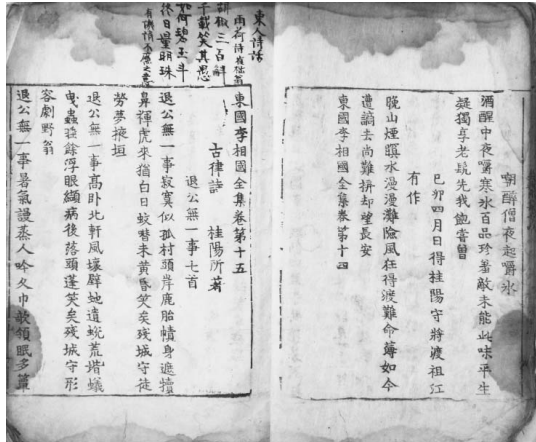 嘲醉僧夜起嚼氷
酒醒中夜嚼寒氷百品珍羞敵未能此味平生
疑獨享老先我飽嘗曾
己卯四月日得桂陽守將渡祖江
有作
晚山煙暝水漫漫灘險風狂得渡難命薄如今
遭謫去尚難拚却望長安
東國李相國全集卷第十四
東人詩話
雨荷詩崔拙翁
胡椒三百斛
千載笑其愚
如何碧玉斗
終日量明珠
東國李相國全集卷第十五
古律詩 桂陽所著
退公無一事七首
退公無一事寂寞似孤村頭岸鹿胎幘身遮犢
鼻褌虎來猶白日蚊嘒未黃昏笑矣殘城守徒
勞夢掖垣
退公無一事高卧北軒風壞壁虵遺蛻荒堦蟻
曳蟲餘浮眼纈病後落頭蓬笑矣殘城守形
容劇野翁
退公無一事暑氣謾蒸人吟久巾欹領眠多簟